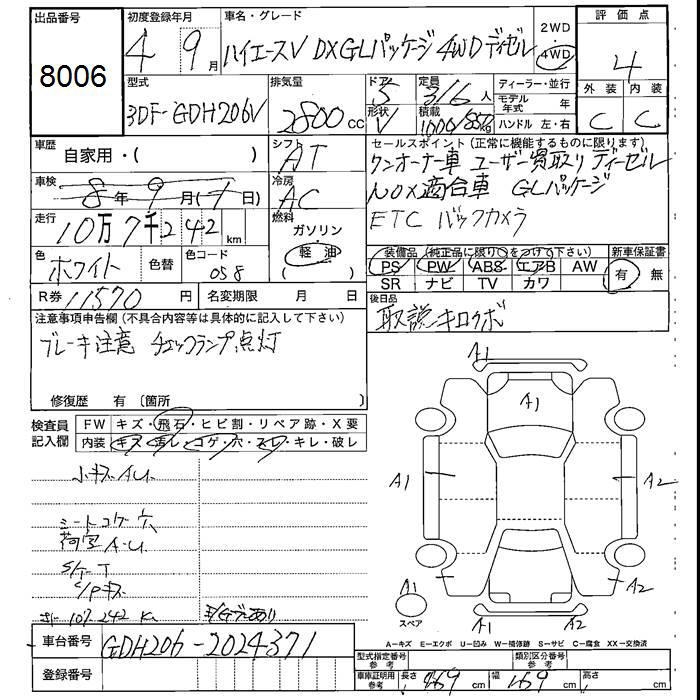 出品番号
8006
初度登録年月
4 9月
車名・グレード
ハイエースV DXGLパッケージ 4WD ディーゼル
2WD
4WD
評価点
4
外装 内装
C C
型式
3DF-GDH206V
排気量
2800cc
ドア
5
形状
V
定員
3/6人
積載
1000/850kg
ディーラー・並行
モデル年式 年
ハンドル 左・右
車歴
自家用・( )
シフト
AT
車検
8年 9月( 1日)
冷房
AC
走行
10万7千242km
燃料
ガソリン
軽油
色
ホワイト
色替
色コード
058
R券 11570円
名変期限 月 日
セールスポイント(正常に機能するものに限ります)
ワンオーナー車 ユーザー買取り ディーゼル
NOX適合車 GLパッケージ
ETC バックカメラ
装備品(純正品に限り○をつけて下さい)
PS PW ABS エアB AW
SR ナビ TV カワ
新車保証書
有 無
後日品
取説 キロクボ
注意事項申告欄(不具合内容等は具体的に記入して下さい)
ブレーキ注意 チェックランプ点灯
修復歴 有 〔箇所 〕
検査員記入欄
FW キズ・飛石・ヒビ割・リペア跡・X要
内装 キズ・汚レ・コゲ・穴・スレ・キレ・破レ
小キズ A.U.
シートコゲ穴
荷室 A.U.
S/ケース
C/Pキズ
107242 K
A1
A1
A1
A2
A2
A2
A1
スペア
A2
A=キズ E=エクボ U=凹み W=補修跡 S=サビ C=腐食 XX=交換済
車台番号
GDH206-2024371
登録番号
型式指定番号 参考
類別区分番号 参考
車庫証明用 参考
長さ 469cm
幅 169cm
高さ cm